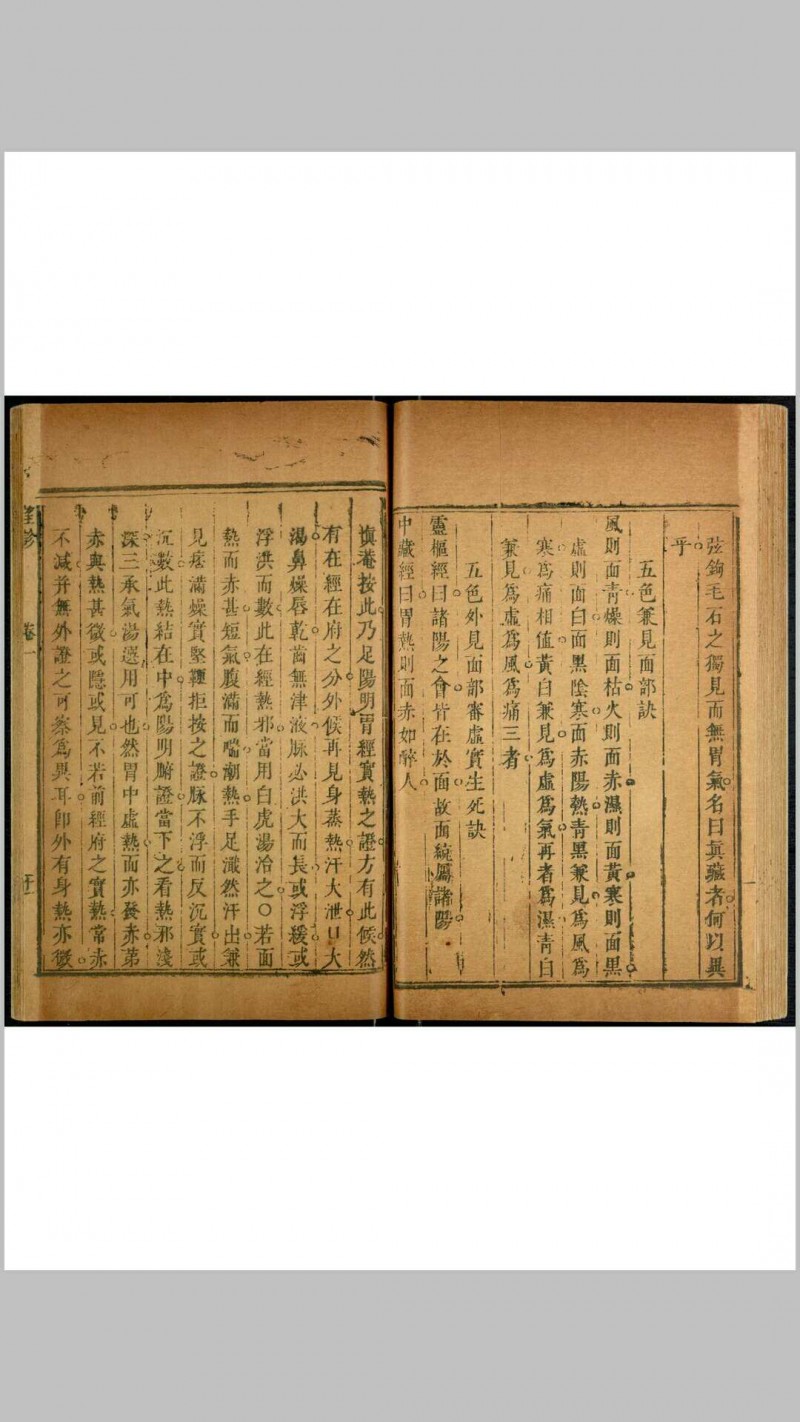 弦鉤毛石之獨見而無胃氣名曰真藏者何以異
乎
五色兼見面部訣
風則面青燥則面枯火則面赤濕則面黃寒則面黑
虛則面白面黑陰寒面赤陽熱青黑兼見爲風爲
寒爲痛相值黃白兼見爲虛爲氣再者爲濕青白
兼見爲虛爲風爲痛三者
五色外見面部審虛實生死訣
靈樞經曰諸陽之會皆在於面故面統屬諸陽
中藏經曰胃熱則面赤如醉人
慎菴按此乃足陽明胃經實熱之證方有此候然
有在經在府之分外候再見身蒸熱汗大泄口大
渴鼻燥唇乾齒無津液脉必洪大而長或浮緩或
浮洪而數此在經熱邪當用白虎湯治之○若面
熱而赤甚短氣腹滿而喘潮熱手足濈然汗出兼
見痞滿燥實堅鞕拒按之證脉不浮而反沉實或
沉數此熱結在中爲陽明腑證當下之看熱邪淺
深三承氣湯選用可也然胃中虛熱面亦發赤第
赤與熱甚微或隱或見不若前經府之實熱常赤
不減并無外證之可察爲異耳卽外有身熱亦微
望診 卷一